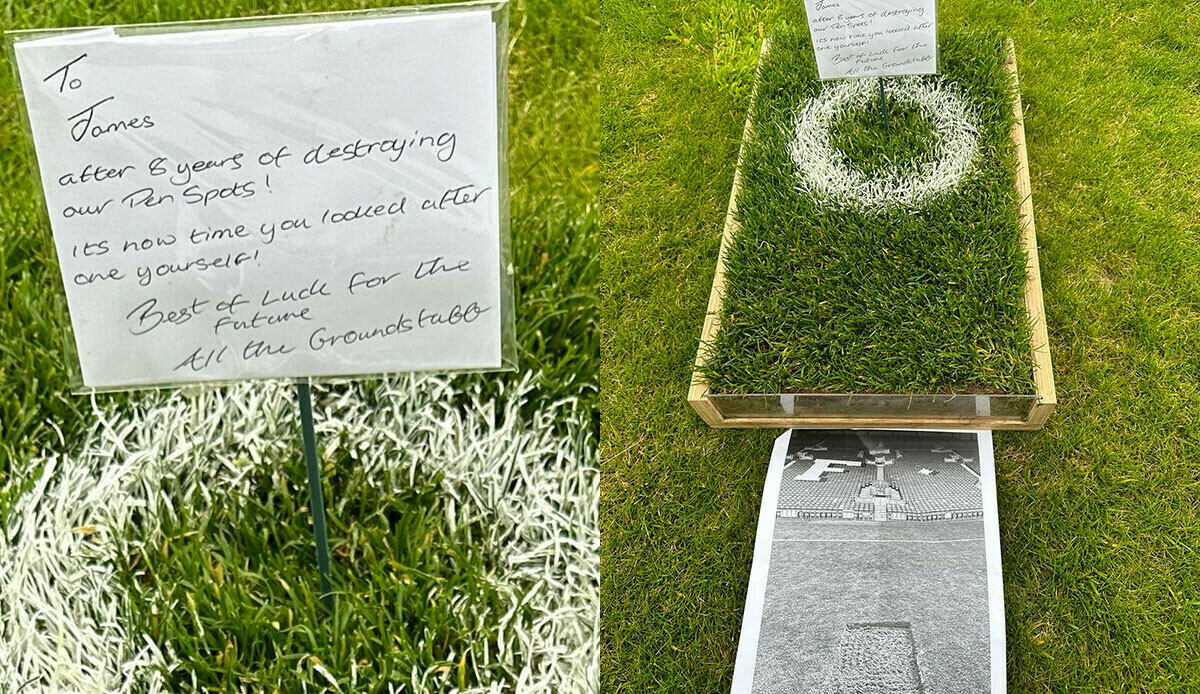 To
James
after 8 years of destroying
our Pen Spots!
its now time you looked after
one yourself!
Best of Luck for the
Future
All the Groundstaff
James
after 8 years of destroying
our Pen Spots!
its now time you looked after
one yourself!
Best of Luck for the
Future
All the Groundstaff
F